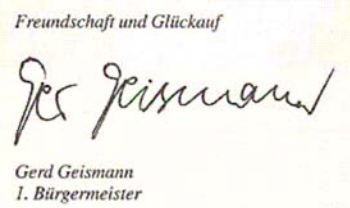 Freundschaft und Glückauf
Ger Geismann
Gerd Geismann
1. Bürgermeister